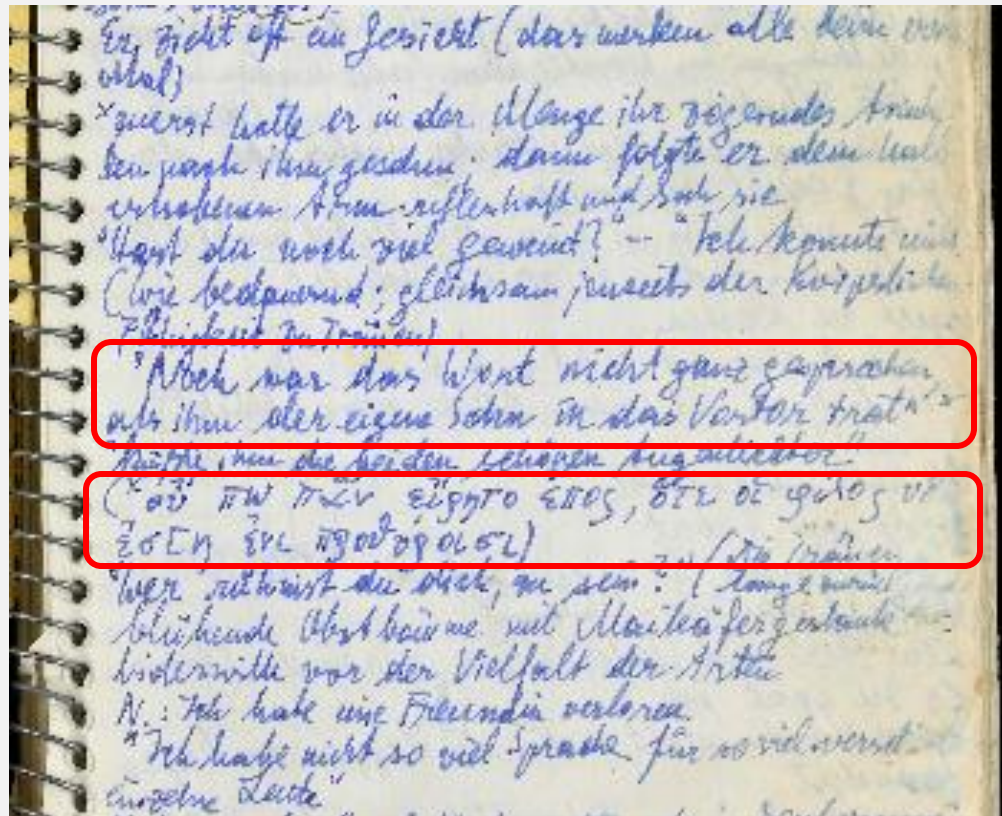 Er zieht oft ein Gesicht (das merken alle beim
Mal)
"zuerst hatte er in der Menge ihr zögerndes
nach ihm gesehen; dann folgte er dem halb
erhobenen Arm reflexhaft und sah sie
"Hast du noch viel geweint?" – "Ich konnte
(wie bedauernd; gleichsam jenseits der
Fähigkeit zu Tränen)
"Noch war das Wort nicht ganz gesprochen,
als ihm der eigene Sohn in das Vortor trat"
küßte ihm die beiden schönen Augenlichter!
("οὔ πω πᾶν εἴρητο ἔπος, ὅτε οἱ φίλος υἱ
ἔστη ἐνὶ προθύροισι)
"Wer rühmst du dich, zu sein?" (die Tränen
lange zurück
blühende Obstbäume mit
vor der Vielfalt der Arten
N.: Ich habe eine Freundin verloren.
"Ich habe nicht so viel Sprache für so viel
einzelne Leute"